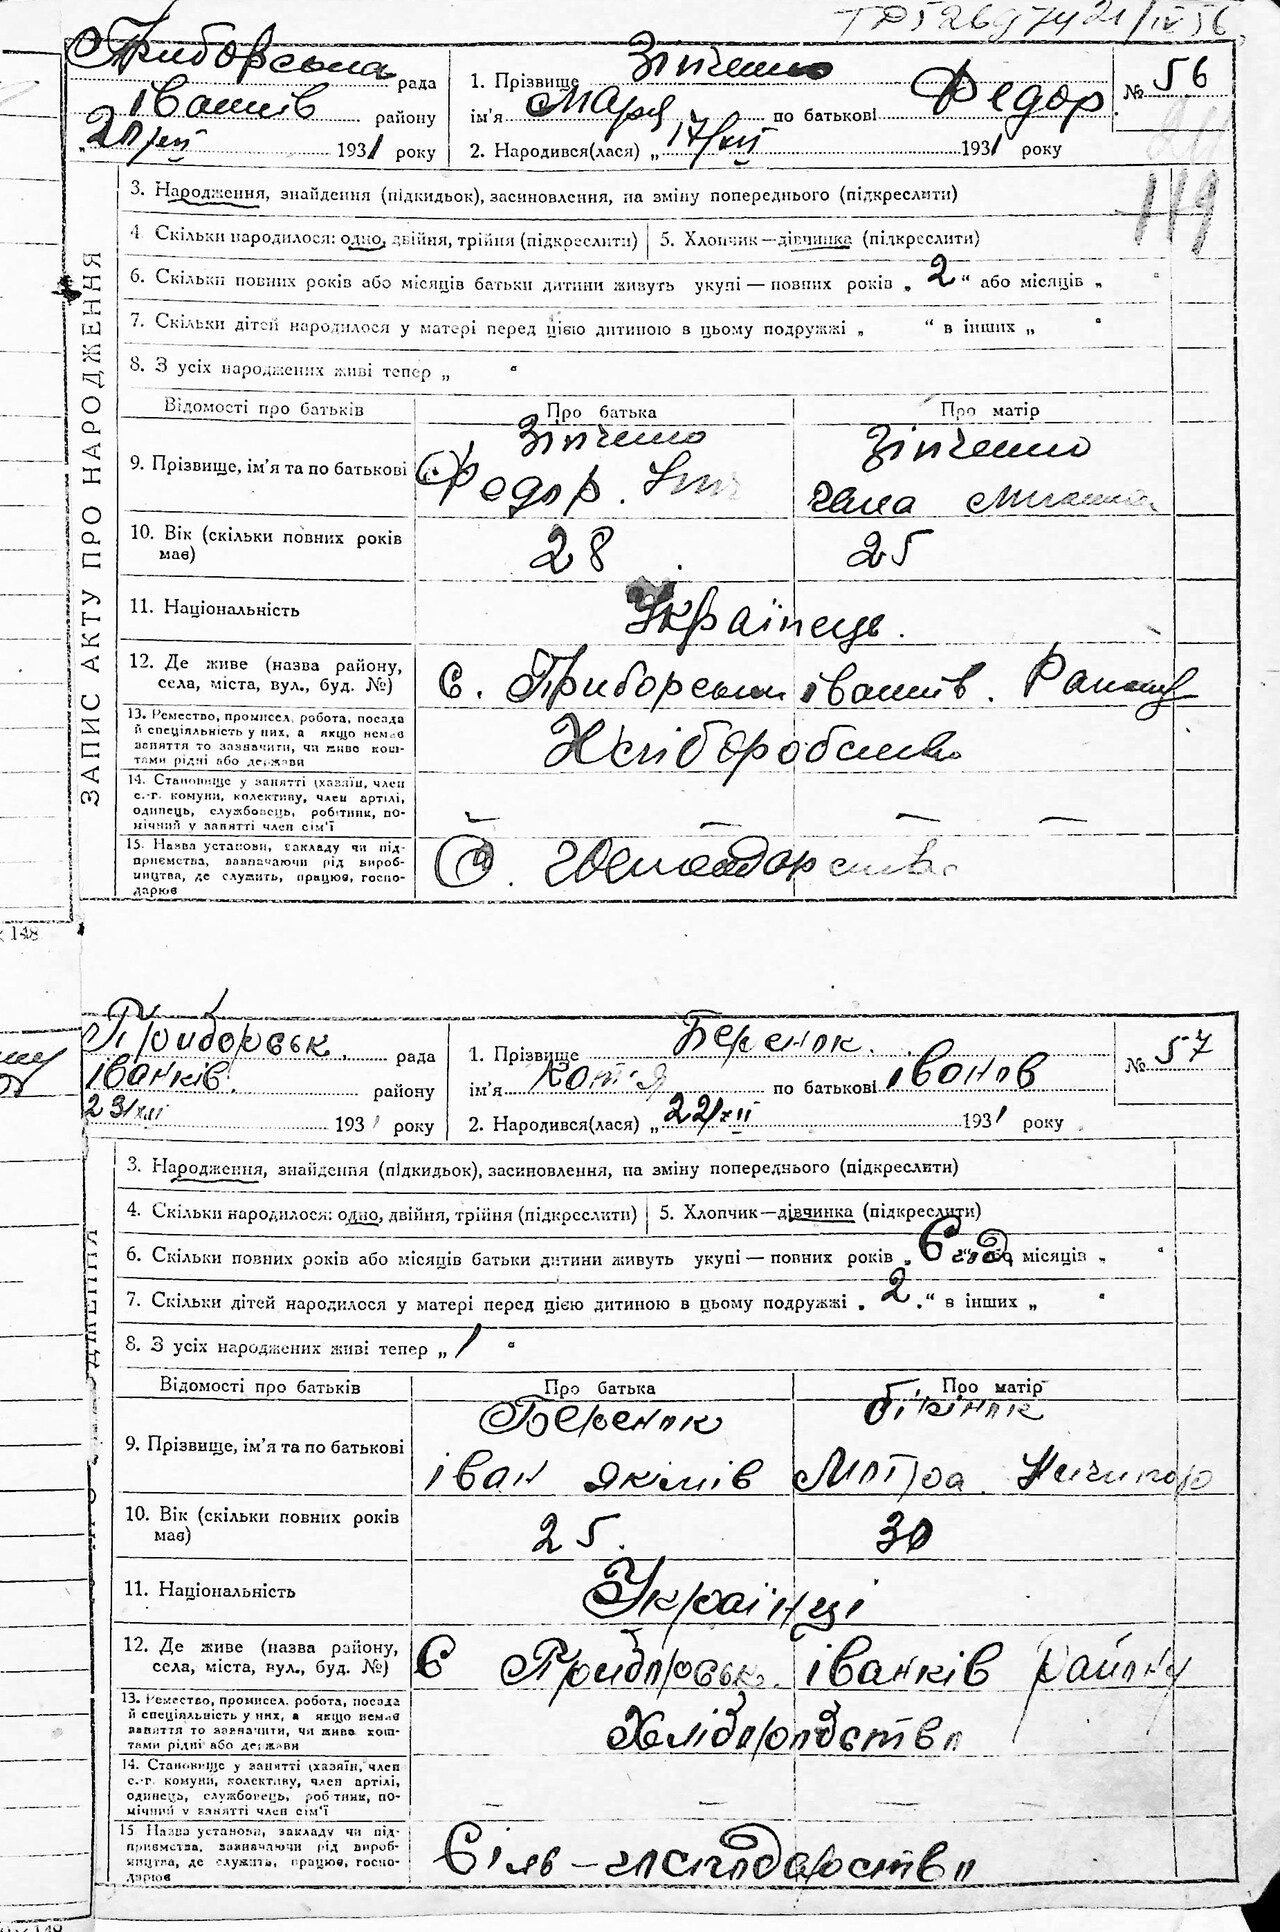 21/IV 56
Приборська рада
1. Прізвище Зінченко
№ 56
Іванків району
ім'я Марія по батькові Федор.
21/XII 1931 року
2. Народився(лася) „ 17/XII 1931 року
119
3. Народження, знайдення (підкидьок), засиновлення, на зміну попереднього (підкреслити)
4. Скільки народилося: одно, двійня, трійня (підкреслити) 5. Хлопчик—дівчинка (підкреслити)
6. Скільки повних років або місяців батьки дитини живуть укупі — повних років „ 2 “ або місяців „ “
7. Скільки дітей народилося у матері перед цією дитиною в цьому подружжі „ “ в інших „ “
8. З усіх народжених живі тепер „ “
ЗАПИС АКТУ ПРО НАРОДЖЕННЯ
Відомості про батьків Про батька Про матір
9. Прізвище, ім'я та по батькові
Зінченко Зінченко
Федор.
10. Вік (скільки повних років має) 28 25
11. Національність Українець.
12. Де живе (назва району, села, міста, вул., буд. №)
с. Приборськ Іванків. Району
13. Ремество, промисел, робота, посада й спеціяльність у них, а якщо немає заняття то зазначити, чи живе коштами рідні або держави
Хліборобство
14. Становище у занятті (хазяїн, член с.-г. комуни, колективу, член артілі, одинець, службовець, робітник, помічний у занятті член сім'ї
— — — —
15. Назва установи, закладу чи підприємства, зазначаючи рід виробництва, де служить, працює, господарює
С. господарство
148
Приборськ. рада
1. Прізвище Беренок.
№ 57
Іванків. району
ім'я Кат-я по батькові Іванов
23/XII 1931 року
2. Народився(лася) „ 22/XII 1931 року
3. Народження, знайдення (підкидьок), засиновлення, на зміну попереднього (підкреслити)
4. Скільки народилося: одно, двійня, трійня (підкреслити) 5. Хлопчик—дівчинка (підкреслити)
6. Скільки повних років або місяців батьки дитини живуть укупі — повних років „ місяців „ “
7. Скільки дітей народилося у матері перед цією дитиною в цьому подружжі „ 2 “ в інших „ “
8. З усіх народжених живі тепер „ 1 “
Відомості про батьків Про батька Про матір
9. Прізвище, ім'я та по батькові
Беренок
іван якимів Мотра Ничипор
10. Вік (скільки повних років має) 25. 30
11. Національність Українці
12. Де живе (назва району, села, міста, вул., буд. №)
С Приборськ. іванків району
13. Ремество, промисел, робота, посада й спеціяльність у них, а якщо немає заняття то зазначити, чи живе коштами рідні або держави
Хліборобство
14. Становище у занятті (хазяїн, член с.-г. комуни, колективу, член артілі, одинець, службовець, робітник, помічний у занятті член сім'ї
— — — —
15 Назва установи, закладу чи підприємства, зазначаючи рід виробництва, де служить, працює, господарює
Сіль-господарство